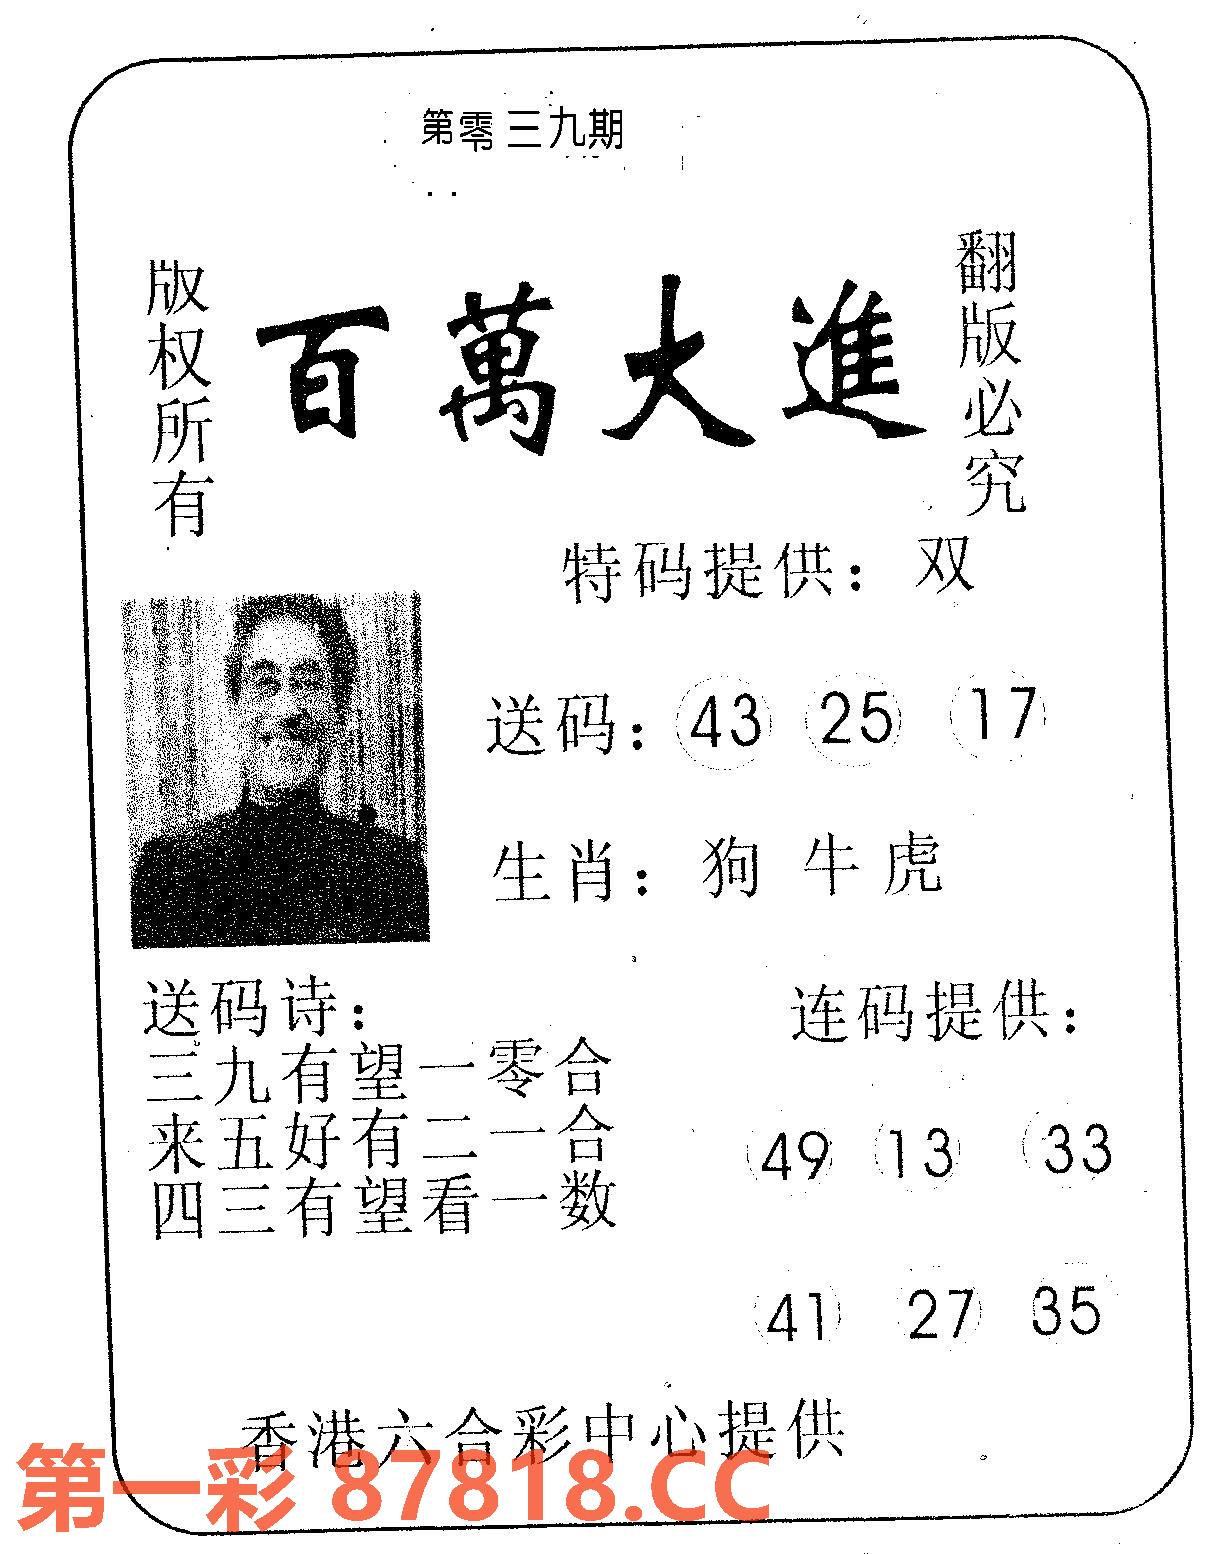 第零三九期
版权所有
百萬大進
翻版必究
特码提供：双
送码：43 25 17
生肖：狗 牛 虎
送码诗：
三九有望一零合
来五好有二一合
四三有望看一数
连码提供：
49 13 33
41 27 35
香港六合彩中心提供
第一彩 87818.CC